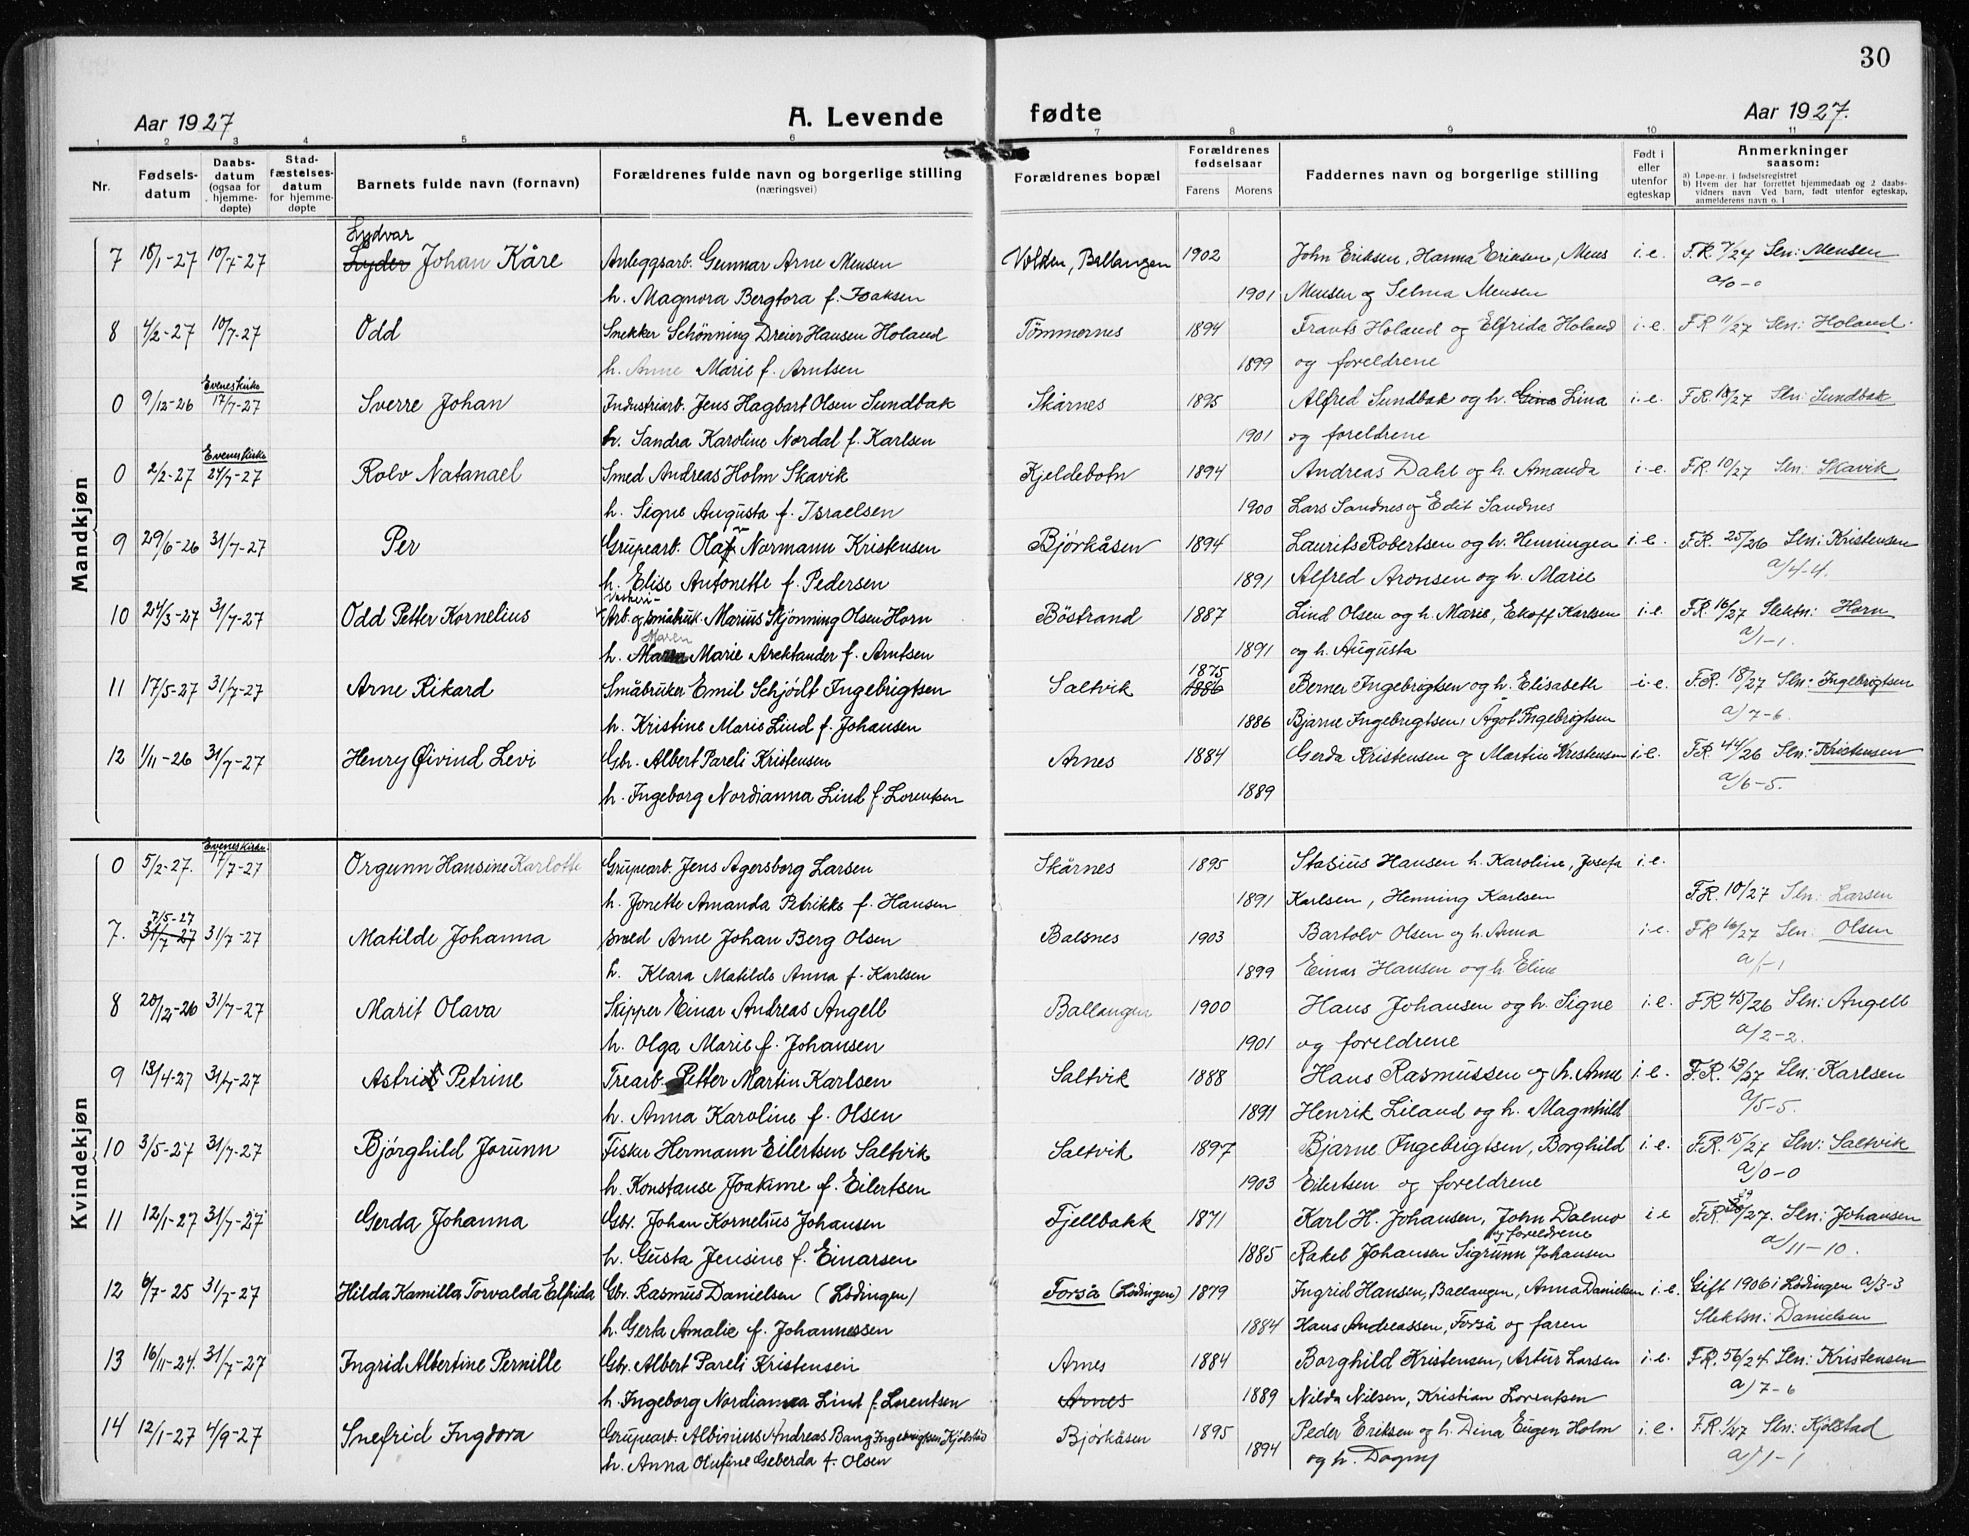 30
Aar 1927 A. Levende fødte Aar 1927.
1 2 3 4 5 6 7 8 9 10 11
Nr. Fødsels-datum Daabs-datum (ogsaa for hjemme-døpte) Stad-fæstelses-datum for hjemme-døpte Barnets fulde navn (fornavn) Forældrenes fulde navn og borgerlige stilling (næringsvei) Forældrenes bopæl Forældrenes fødselsaar Farens Morens Faddernes navn og borgerlige stilling Født i eller utenfor egteskap Anmerkninger saasom:
a) Løpe-nr. i fødselsregistret
b) Hvem der har forrettet hjemmedaab og 2 daabs-vidners navn Ved barn, født utenfor egteskap, anmelderens navn o. l
Mandkjøn
Lydvar
7 18/1-27 10/7-27 Lyder Johan Kåre Anleggsarb. Gunnar Arne Mensen Volden, Ballangen 1902 John Eriksen, Hanna Eriksen, Mens i.e. F.R. 7/27 Sln: Mensen
h. Magnora Bergtora f. Isaksen 1901 Mensen og Selma Mensen a/0-0
8 4/2-27 10/7-27 Odd Snekker Schönning Dreier Hansen Holand Tömmernes 1894 Frants Holand og Elfrida Holand i.e. FR 11/27 Sln: Holand.
h. Anne Marie f. Arntsen 1899 og foreldrene
Evenes kirke
0 9/12-26 17/7-27 Sverre Johan Industriarb. Jens Hagbart Olsen Sundbak Skårnes 1895 Alfred Sundbak og h. Gina Lina i.e. F.R. 18/27 Sln: Sundbak
h. Sandra Karoline Nordal f. Karlsen 1901 og foreldrene
Evenes kirke
0 2/2-27 24/7-27 Rolv Natanael Smed Andreas Holm Skavik Kjeldebotn 1894 Andreas Dahl og h. Amanda i.e. F.R. 10/27 Sln: Skavik
h. Signe Augusta f. Israelsen 1900 Lars Sandnes og Edit Sandnes
9 29/6-26 31/7-27 Per Grupearb. Olaf Normann Kristensen Bjørkåsen 1894 Laurits Robertsen og h. Henningea i.e. F.R. 25/26 Sln: Kristensen
h. Elise Antonette f. Pedersen 1891 Alfred Aronsen og h. Marie a/4-4.
10 24/3-27 31/7-27 Odd Petter Kornelius Arb. og småbruk. Marius Skjönning Olsen Horn Böstrand 1887 Lind Olsen og h. Marie, Ekoff Karlsen i.e. F.R. 16/27 Slektn: Horn
Maren
h. Marie Arektander f. Arntsen 1891 og h. Augusta a/1-1.
11 17/5-27 31/7-27 Arne Rikard Småbruker Emil Schjölt Ingebrigtsen Saltvik 1875 1886 Berner Ingebrigtsen og h. Elisabeth i.e. F.R. 18/27 Sln: Ingebrigtsen
h. Kristine Marie Lind f. Johansen 1886 Bjarne Ingebrigtsen, Ågot Ingebrigtsen a/7-6.
12 1/11-26 31/7-27 Henry Øivind Levi Gbr. Albert Pareli Kristensen Arnes 1884 Gerda Kristensen og Martin Kristensen i.e. F.R. 44/26 Sln: Kristensen
h. Ingeborg Nordianna Lind f. Lorentsen 1889 a/6-5.
Kvindekjøn
Evenes kirke.
0 5/2-27. 17/7-27 Orgunn Hansine Karlotte Grupearb. Jens Agersborg Larsen Skårnes 1895 Stasius Hansen h. Karoline, Josefa i.e.
h. Jonette Amanda Petrikke f. Hansen 1891 Karlsen, Henning Karlsen F.R. 10/27 Sln: Larsen
7/5-27
7. 31/7-27 31/7-27 Matilde Johanna Smed Arne Johan Berg Olsen Balsnes 1903 Bartolv Olsen og h. Anna i.e. FR 16/27 Sln: Olsen
h. Klara Matilde Anna f. Karlsen 1899 Einar Hansen og h. Eline a/1-1
8 20/12-26 31/7-27 Marit Olava Skipper Einar Andreas Angell Ballangen 1900 Hans Johansen og h. Signe i.e. FR 45/26 Sln: Angell
h. Olga Marie f. Johansen 1901 og foreldrene a/2-2.
9 13/4-27 31/7-27 Astrid Petrine Trearb. Petter Martin Karlsen Saltvik 1888 Hans Rasmussen og h. Anne i.e. F.R. 13/27 Sln: Karlsen
h. Anna Karoline f. Olsen 1891 Henrik Liland og h. Magnhild a/5-5.
10 3/5-27 31/7-27 Bjørghild Jorunn Fisker Hermann Eilertsen Saltvik Saltvik 1897 Bjarne Ingebrigtsen, Borghild i.e. F.R. 15/27 Sln: Saltvik
h. Konstanse Joakime f. Eilertsen 1903 Eilertsen og foreldrene a/0-0
11 12/1-27 31/7-27 Gerda Johanna Gbr. Johan Kornelius Johansen Fjellbakk 1871 Karl H. Johansen, John Dalmo i.e F.R. /27. Sln: Johansen
og foreldrene
h. Gusta Jensine f. Einarsen 1885 Rakel Johansen Sigrunn Johansen a/11-10.
12 6/7-25 31/7-27 Hilda Kamilla Torvalda Elfrida Gbr. Rasmus Danielsen (Lödingen) Forså (Lödingen) 1879 Ingrid Hansen, Ballangen, Anna Danielsen i.e. Gift 1906 i Lödingen a/3-3
h. Gerla Amalie f. Johannessen 1884 Hans Andreassen, Forså og faren Slektsn: Danielsen
13 16/11-24. 31/7-27 Ingrid Albertine Pernille Gbr. Albert Pareli Kristensen Arnes 1884 Borghild Kristensen, Artur Larsen i.e. F.R. 56/24. Sln: Kristensen
h. Ingeborg Nordianna Lind f. Lorentsen Arnes 1889 Nilda Nilsen, Kristian Lorentsen a/7-6
14 12/1-27 4/9-27 Snefrid Ingdora Grupearb. Albinius Andreas Bang Ingebrigtsen Kjölstad Bjørkåsen 1895 Peder Eriksen og h. Dina Eugen Holm i.e. F.R. 1/27 Sln: Kjölstad
h. Anna Olufine Geberda f. Olsen 1894 og h. Dagny a/1-1